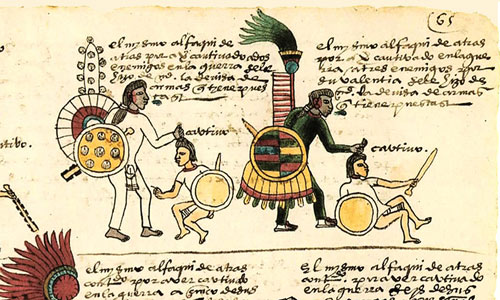 65
el mismo alfaqui de
atras por a v cautivado dos
enemigos en la guerra se le
hizo de md. la devisa de
armas q tiene pues
tas
el mismo alfaqui de atras
por a v cautivado en la gue
rra, a tres enemigos por
su valentia se le hizo de
md. la devisa de armas
q tiene puestas
cautivo.
cautivo.
tivo.
el mismo alfaqui de atras
conto por aver cautivado
en la guerra a cinco de sus
El mismo alfaqui de atras
conto. por aver cautivado
en la guerra de sus